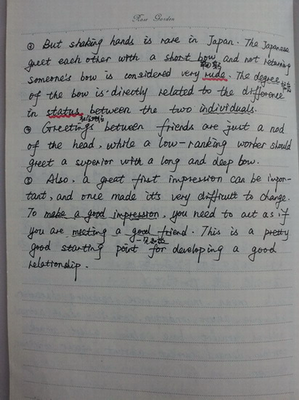 ② But shaking hands is rare in Japan. The Japanese
greet each other with a short bow and not returning
someone's bow is considered very rude. The degree
of the bow is directly related to the difference
in status between the two individuals.
③ Greetings between friends are just a nod
of the head, while a low-ranking worker should
greet a superior with a long and deep bow.
① Also, a great first impression can be impor-
tant, and once made it's very difficult to change.
To make a good impression, you need to act as if
you are meeting a good friend. This is a pretty
good starting point for developing a good
relationship.